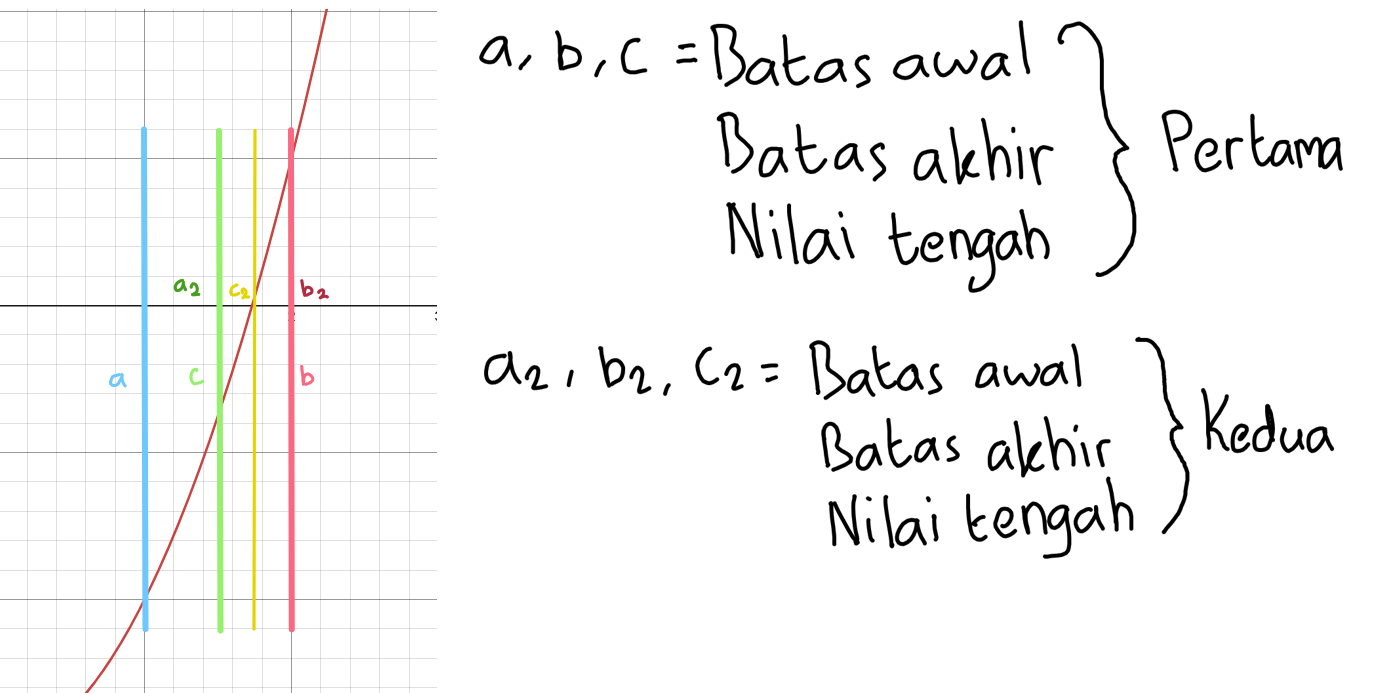 a, b, c = Batas awal
Batas akhir
Nilai tengah
Pertama
a₂, b₂, c₂ = Batas awal
Batas akhir
Nilai tengah
Kedua
a₂ c₂ b₂
a c b